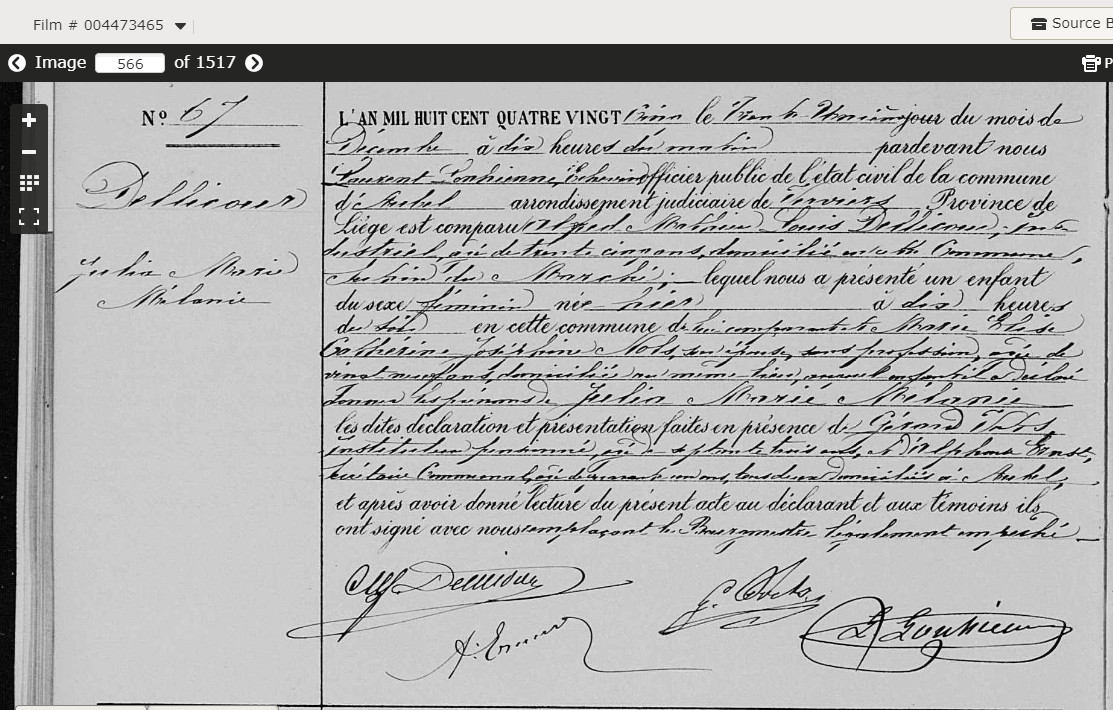 Film # 004473465
Source B
Image 566 of 1517
P
Nº 67
L'AN MIL HUIT CENT QUATRE VINGT le Trente Unième jour du mois de
Décembre à dix heures du matin pardevant nous
Laurent officier public de l'état civil de la commune
d'Aubel arrondissement judiciaire de Verviers Province de
Dellicour
Liège est comparu Alfred Mathieu Louis Dellicour, In-
dustriel, âgé de trente cinq ans, domicilié en cette Commune,
Julia Marie
Mélanie
de Marché; lequel nous a présenté un enfant
du sexe féminin née hier à dix heures
du soir en cette commune de lui comparant et Marie Elise
Catherine Joséphine Nols, son épouse, sans profession, âgée de
vingt neuf ans, domiciliée au même lieu, auquel enfant il a déclaré
donner les prénoms de Julia Marie Mélanie
les dites déclaration et présentation faites en présence de Gérard
instituteur pensionné, âgé de septante trois ans, et d'Alphonse Ernst,
Communal, âgé de ans, tous deux domiciliés à Aubel,
et après avoir donné lecture du présent acte au déclarant et aux témoins ils
ont signé avec nous remplaçant le Bourgmestre légalement empêché
Alf Dellicour
A. Ernst